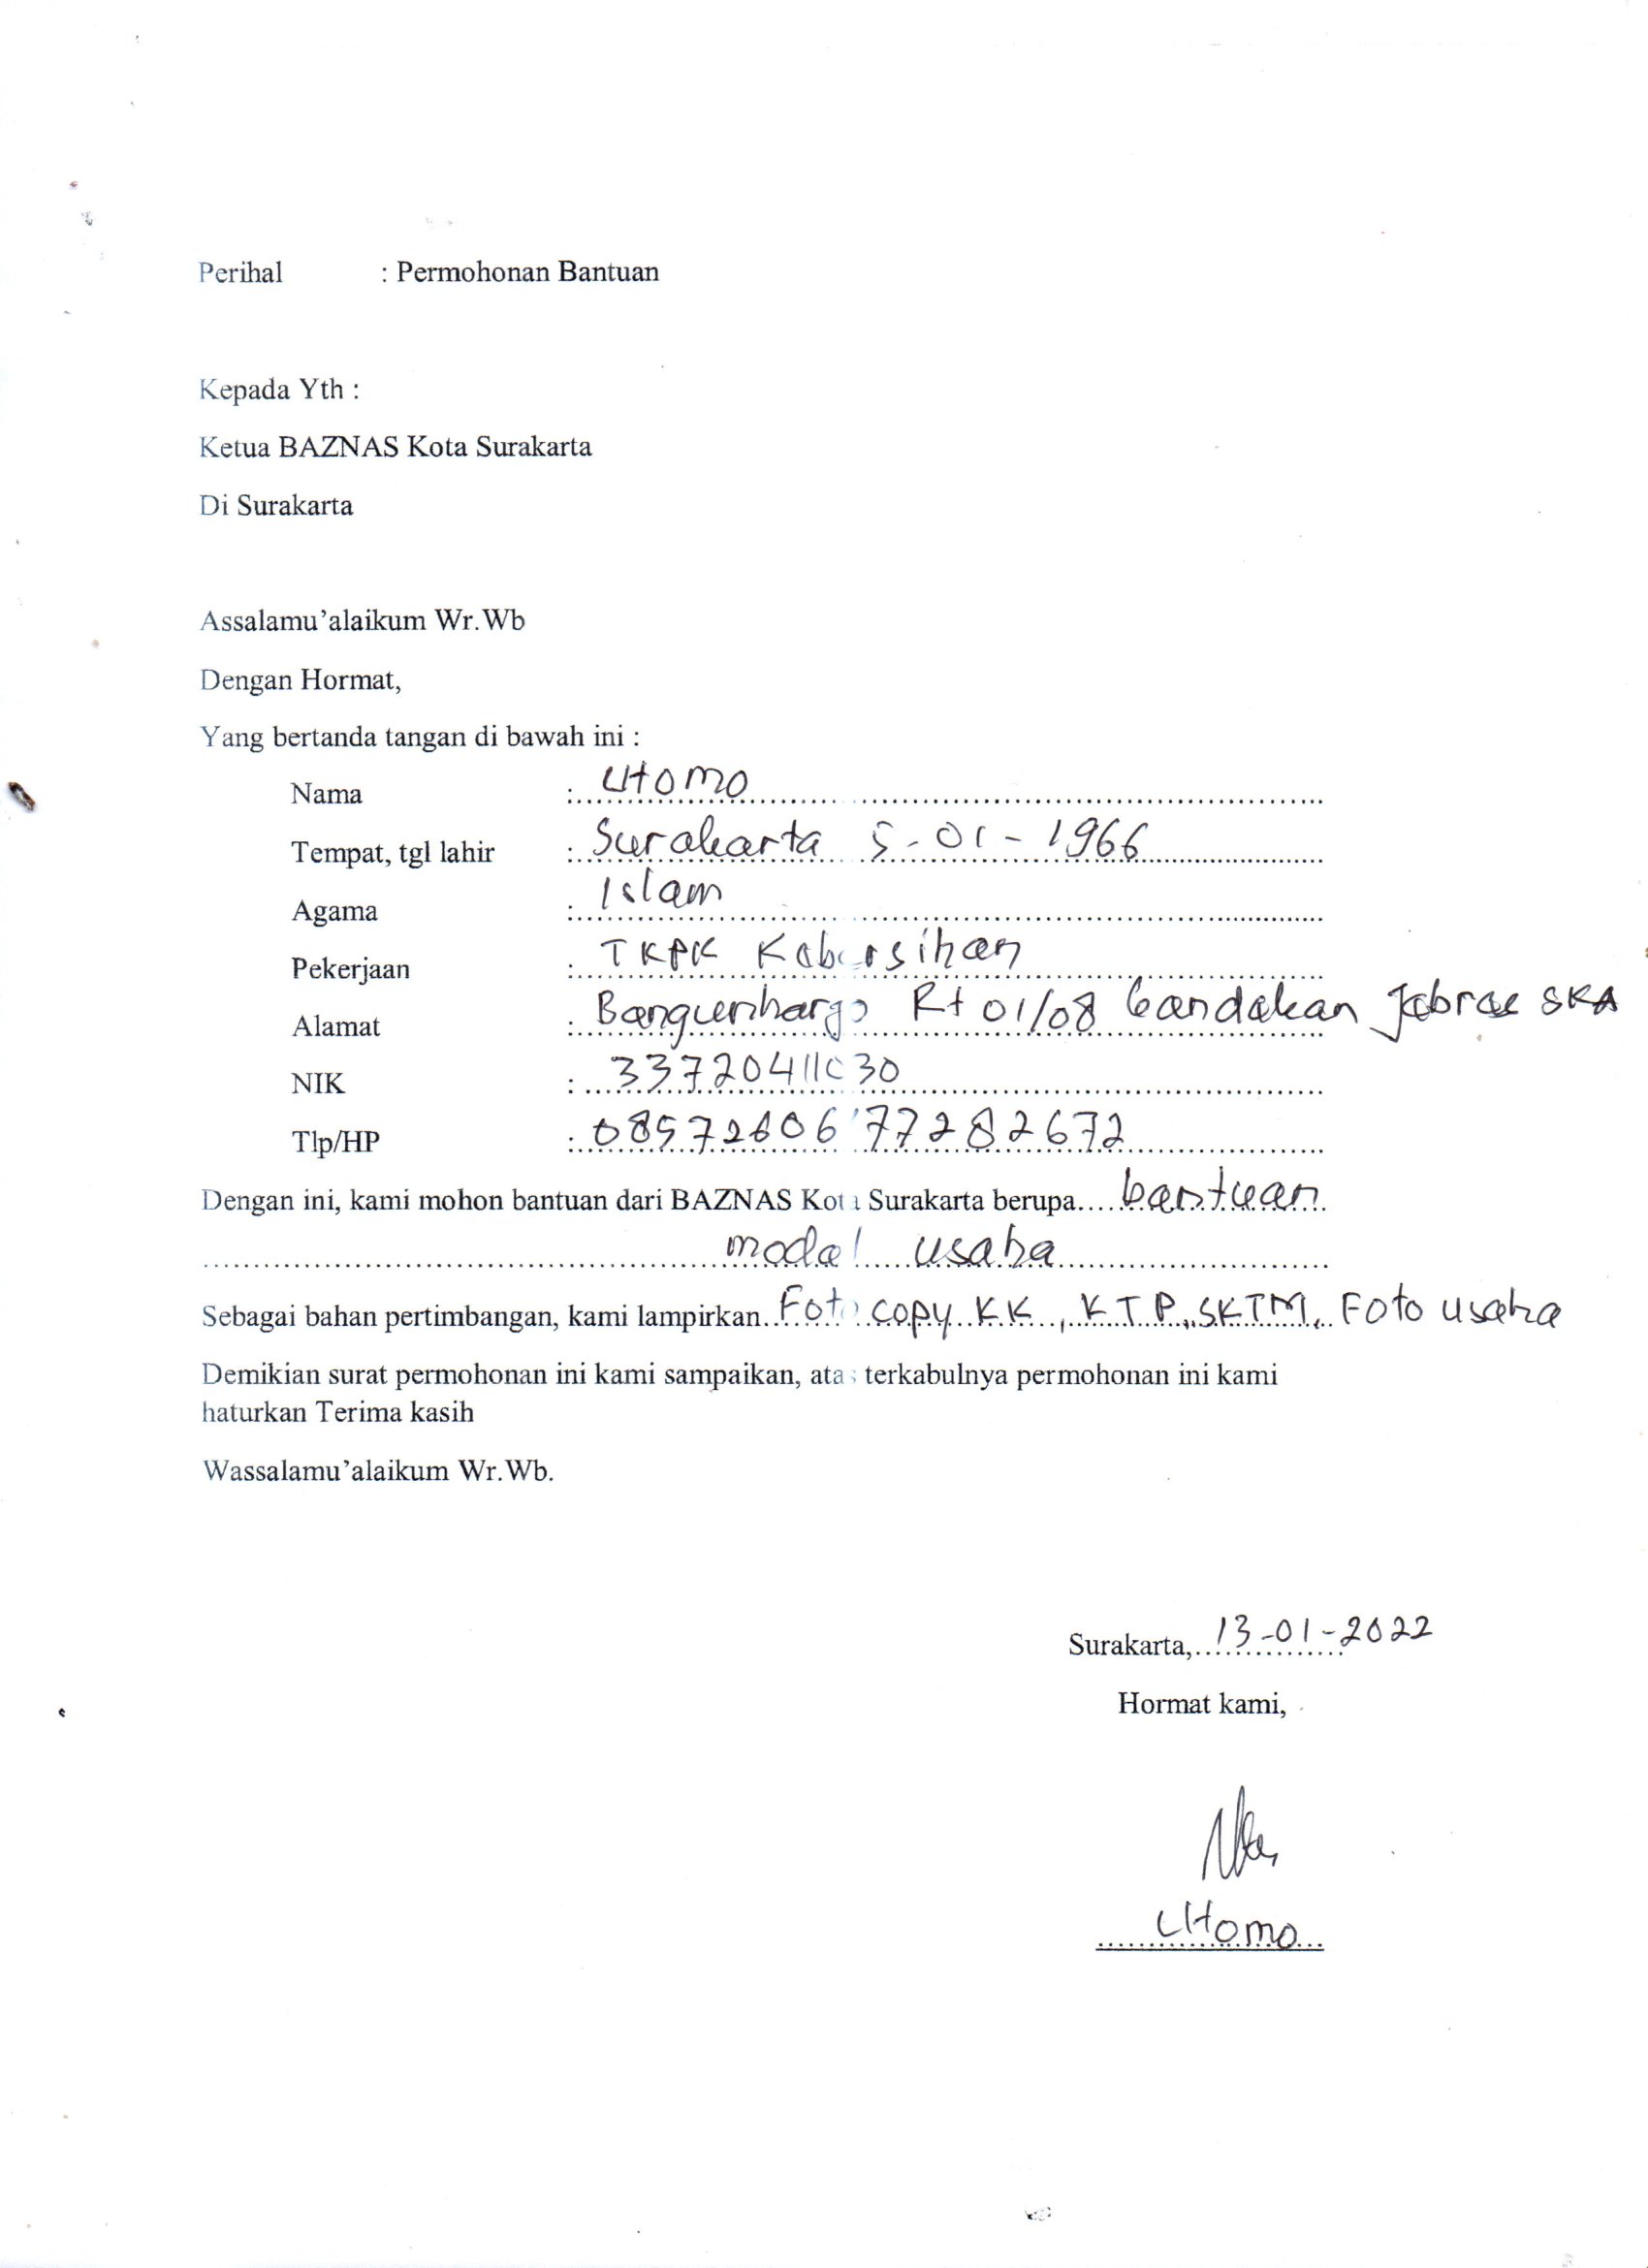 Perihal : Permohonan Bantuan
Kepada Yth :
Ketua BAZNAS Kota Surakarta
Di Surakarta
Assalamu'alaikum Wr.Wb
Dengan Hormat,
Yang bertanda tangan di bawah ini :
Nama : Utomo
Tempat, tgl lahir : Surakarta 5-01-1966
Agama : Islam
Pekerjaan : TKPK Kebersihan
Alamat : Rt 01/08 SKA
NIK : 3372041103 0
Tlp/HP : 08572606 77282672
Dengan ini, kami mohon bantuan dari BAZNAS Kota Surakarta berupa.....bantuan
modal usaha
Sebagai bahan pertimbangan, kami lampirkan..Foto copy KK, KTP, SKTM, Foto usaha
Demikian surat permohonan ini kami sampaikan, atas terkabulnya permohonan ini kami
haturkan Terima kasih
Wassalamu'alaikum Wr.Wb.
Surakarta, 13-01-2022
Hormat kami,
Utomo